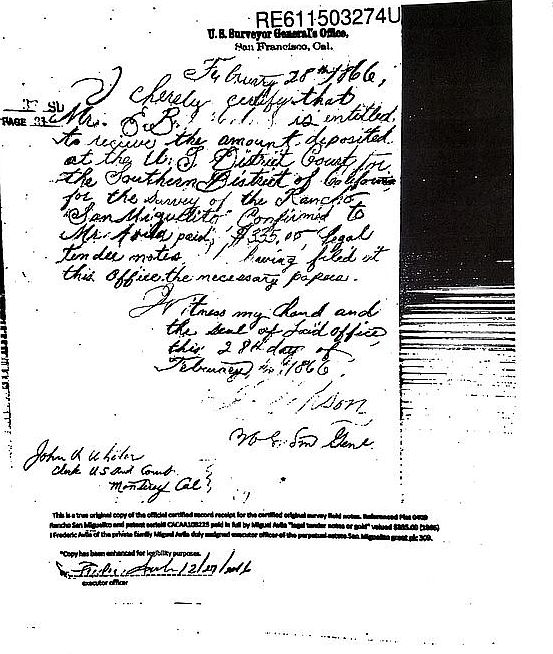 RE611503274U
U. S. Surveyor General's Office,
San Francisco, Cal.
February 28th 1866,
I hereby certify that
Mr. E. B. is entitled
PAGE
to receive the amount deposited
at the U. S. District Court for
the Southern District of California
for the survey of the Rancho
"San Miguelito" Confirmed to
Mr. Avila paid, $335.00 legal
tender notes, having filed at
this Office the necessary papers.
Witness my hand and
the seal of said office
this 28th day of
February, 1866.
John
Clerk US
Monterey Cal
This is a true original copy of the official certified record receipt for the certified original survey field notes. Referenced
Rancho San Miguelito and patent paid in full by Miguel Avila "legal tender notes or gold" valued
I Frederic Avila of the private family Miguel Avila duly assigned executor officer of the perpetual estate San Miguelito grant
*Copy has been enhanced for legibility purposes.
executor officer